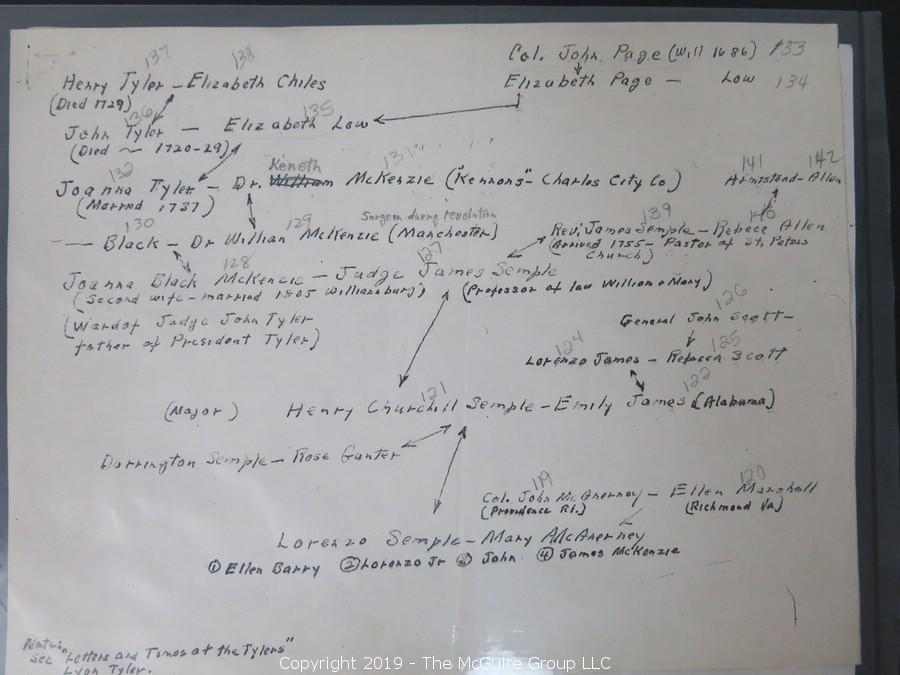 137 138 Col. John Page (Will 1686) 133
Henry Tyler – Elizabeth Chiles Elizabeth Page – Low 134
(Died 1729)
136 135
John Tyler – Elizabeth Low
(Died ~ 1720-29)
132 Keneth 131 141 142
Joanna Tyler – Dr. William McKenzie ("Kennons" – Charles City Co) Armistead – Allen
(Married 1737)
130 129 Surgeon during revolution 139 140
— Black – Dr William McKenzie (Manchester) Rev. James Semple – Rebece Allen
(Arrived 1755 – Pastor of St. Peters
Church)
128 127
Joanna Black McKenzie – Judge James Semple
(Second wife – married 1805 Williamsburg) (Professor of law William + Mary)
(Ward of Judge John Tyler
father of President Tyler)
126
General John Scott –
124 125
Lorenzo James – Rebecca Scott
121 122
(Major) Henry Churchill Semple – Emily James (Alabama)
Darrington Semple – Rose Gunter
119 120
Col. John McAnerney – Ellen Marshall
(Providence RI.) (Richmond Va)
Lorenzo Semple – Mary McAnerney
① Ellen Barry ② Lorenzo Jr ③ John ④ James McKenzie
See "Letters and Times of the Tylers"
Lyon Tyler.
Copyright 2019 - The McGuire Group LLC